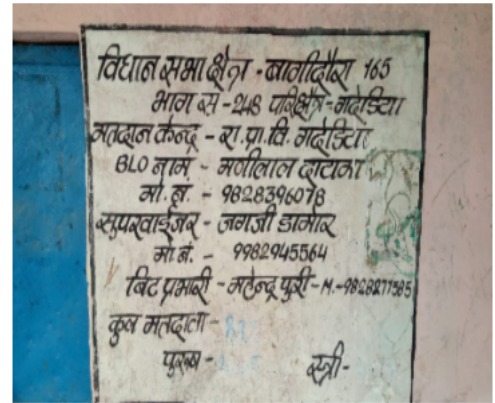 विधान सभा क्षैत्र - बागीदौरा 165
भाग स - 248 परिक्षैत्र - गदेडिया
मतदान केन्द्र - रा.प्रा.वि. गदेडिया
BLO नाम - मणीलाल दायमा
मो. न. - 9828396078
सुपरवाईजर - जगजी डामोर
मो नं. - 9982945564
बिट प्रभारी - महेन्द्र पुरी - M.-9828277585
कुल मतदाता -
पुरुष -
स्त्री -